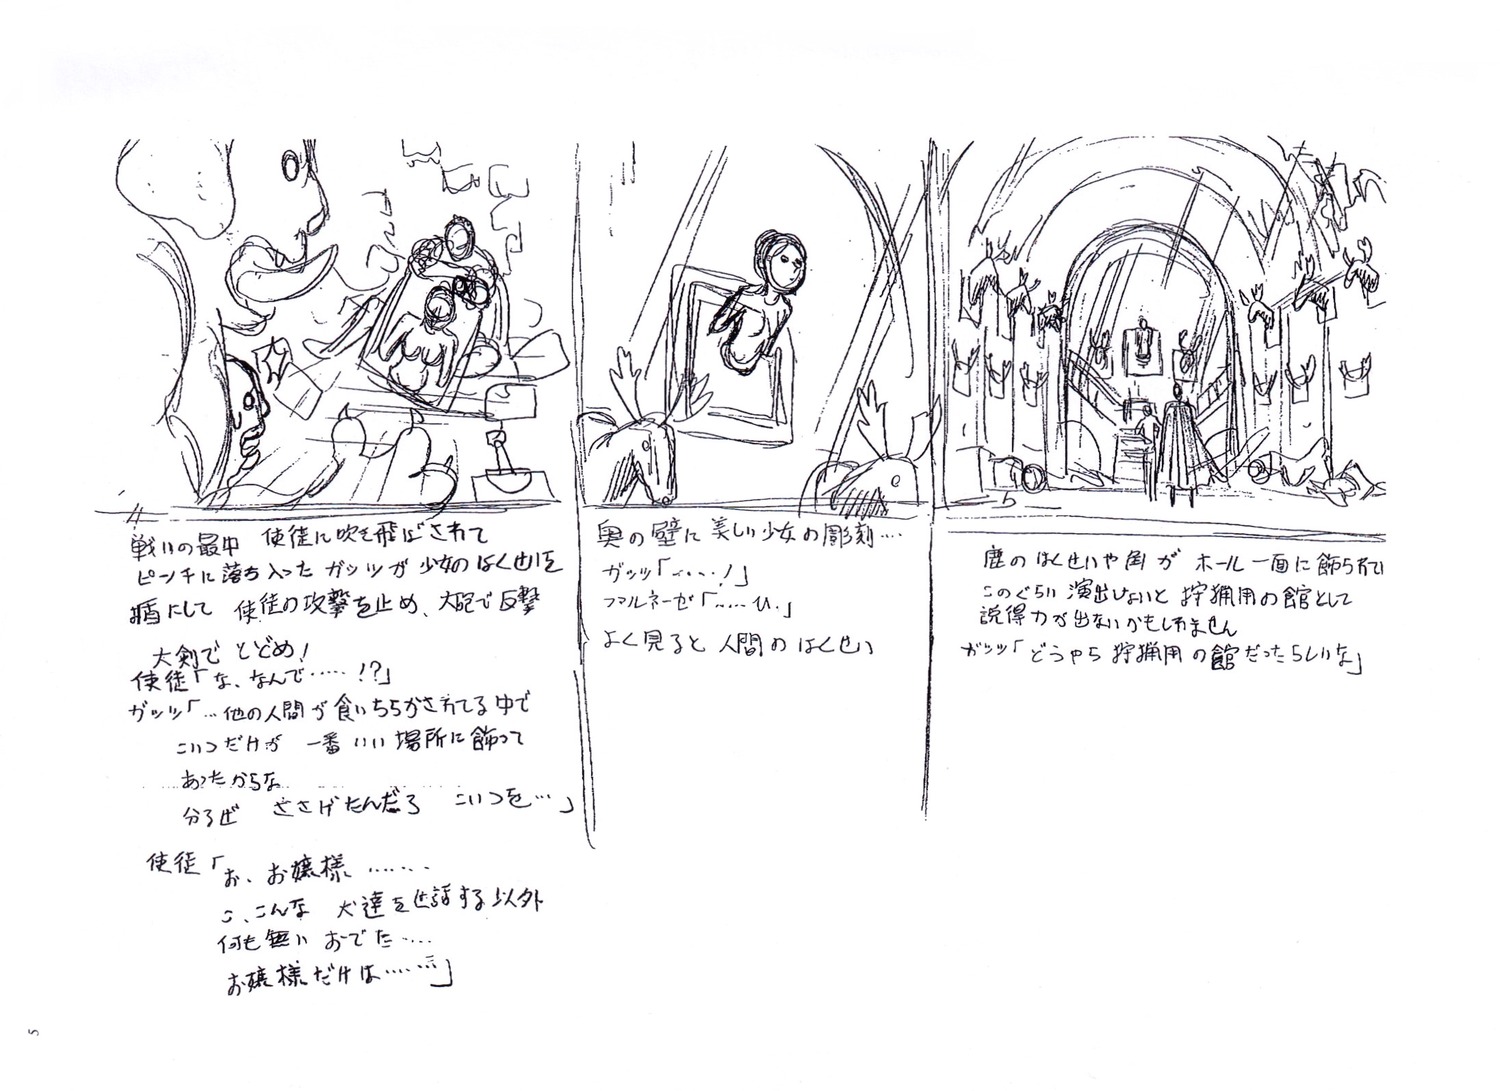 鹿のはくせいや角が ホール一面に飾られてい
このぐらい演出しないと 狩猟用の館として
説得力が出ないかもしれません
ガッツ「どうやら 狩猟用の館だったらしいな」
奥の壁に美しい少女の彫刻‥‥
ガッツ「‥‥‥!」
ファルネーゼ「‥‥‥ひ。」
よく見ると 人間のはくせい
戦いの最中 使徒に吹き飛ばされて
ピンチに落ち入ったガッツが 少女のはくせいを
盾にして 使徒の攻撃を止め、大砲で反撃
大剣でとどめ!
使徒「な、なんで‥‥‥!?」
ガッツ「‥他の人間が食いちらかされてる中で
こいつだけが 一番いい場所に飾って
あったからな
分るぜ ささげたんだろ こいつを‥‥」
使徒「お、お嬢様‥‥‥
こ、こんな 犬達を世話する以外
何も無い おでた‥‥
お嬢様だけは‥‥‥‥」
5